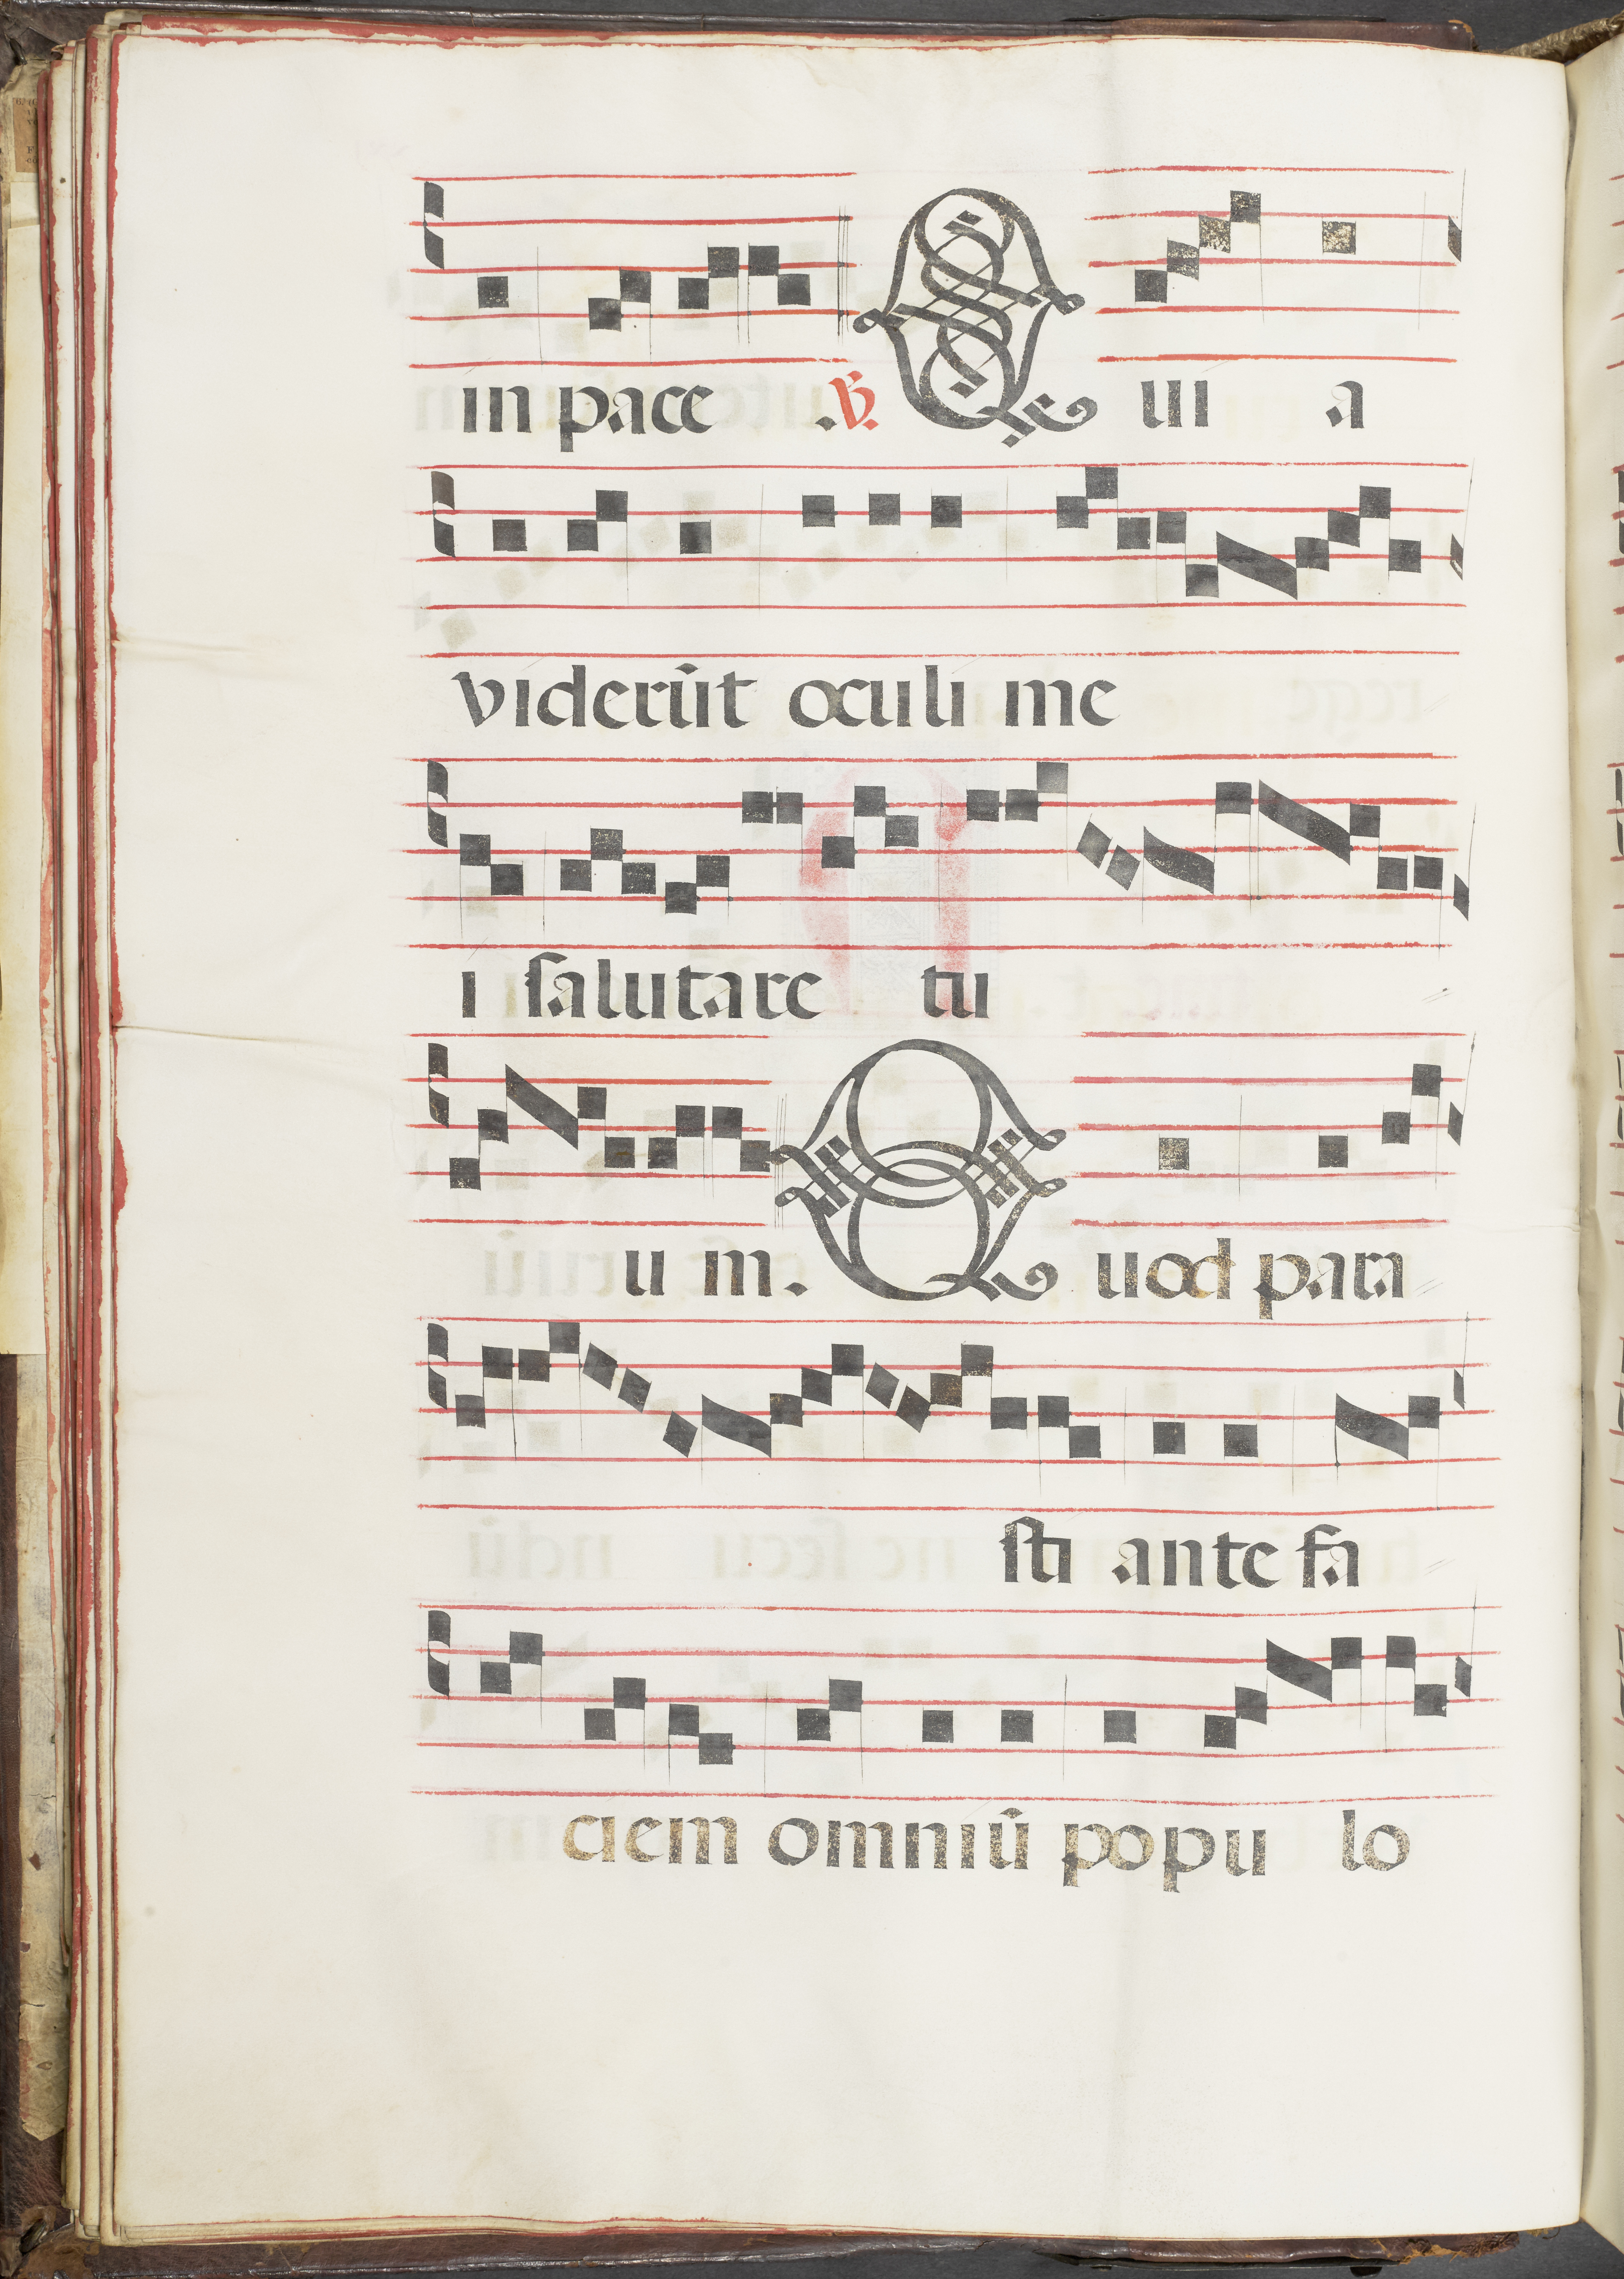 in pace .℣. Qui a
viderūt oculi me
i salutare tu
u m. Quod para
sti ante fa
ciem omniū popu lo